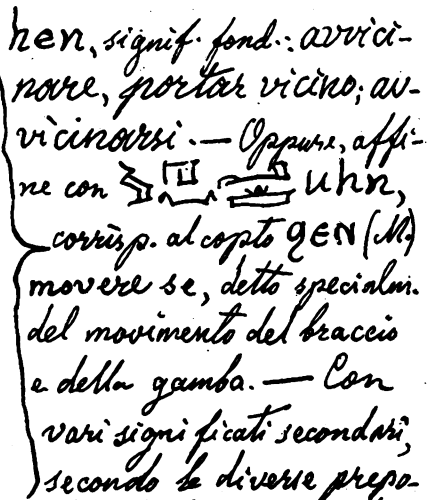 hen, signif. fond.: avvici-
nare, portar vicino; av-
vicinarsi. — Oppure, affi-
ne con uhn,
corrisp. al copto ϧEN (M.)
movere se, detto specialm.
del movimento del braccio
e della gamba. — Con
vari significati secondari,
secondo le diverse prepo-